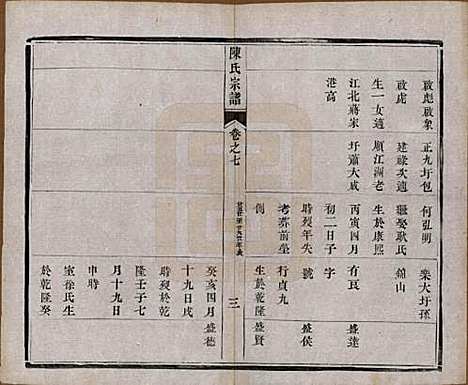 啟彪啟象 正九圩包 何弘朗 欒大圩孫
啟處 建祿次適 繼娶耿氏 錦山
生一女適 順江洲老 生於康熙
江北蔣家 圩蕭大成 丙寅四月 有良 盛達
港高 初二日子 字
時歿年失 號 盛侯
考葬前塋 行貞九
側 生於乾隆 盛賢
陳氏宗譜
卷之七
三
癸亥四月 盛德
十九日戌
時歿於乾
隆壬子七
月十九日
申時
室徐氏生
於乾隆癸